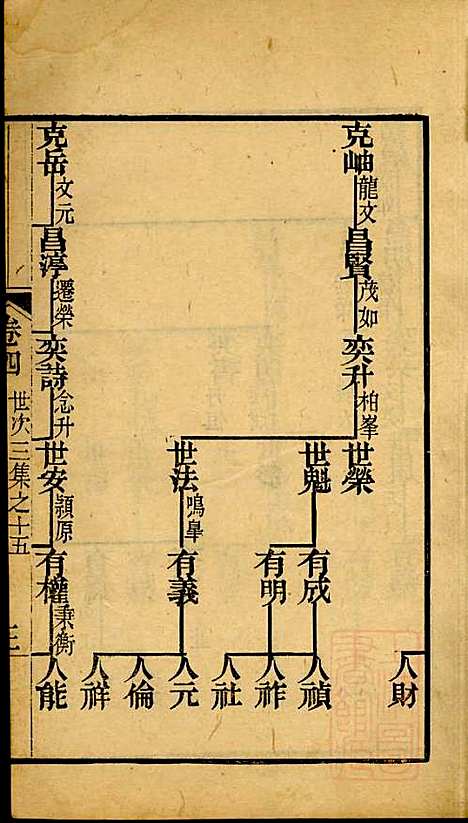 克岫 龍文
昌賢 茂如
奕升 柏峯
世榮
世魁
世法 鳴皐
有成
有明
有義
人財
人禎
人祚
人社
人元
人倫
人祥
克岳 文元
昌渟 遷榮
奕詩 念升
世安 頴原
有權 秉衡
人能
卷四 世次三集之十五